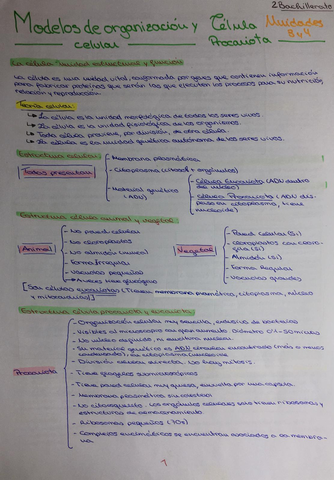 2 Bachillerato
Modelos de organización y Célula Unidades
celular Procariota 8 y 9
La célula: Unidad estructural y funcional
La célula es una unidad vital, conformada por genes que contienen información
para fabricar proteínas que serán las que ejecuten los procesos para su nutrición,
relación y reproducción.
Teoría celular:
↳ La célula es la unidad morfológica de todos los seres vivos
↳ La célula es la unidad fisiológica de los organismos.
↳ Toda célula proviene, por división, de otra célula.
↳ La célula es la unidad genética autónoma de los seres vivos.
Estructura celular:
- Membrana plasmática
Todas presentan
- Citoplasma (citosol + orgánulos)
- Material genético
(ADN)
- Célula Eucariota (ADN dentro
de núcleo)
- Célula Procariota (ADN dis-
perso en citoplasma, tiene
nucleoide)
Estructura célula animal y vegetal
Animal
- No pared celular
- No cloroplastos
- No almidón
- Forma irregular
- Vacuolas pequeñas
Vegetal
- Pared celular (Sí)
- cloroplastos con
(Sí)
- Almidón (Sí)
- Forma Regular
- Vacuolas grandes
[Son células eucariotas] (Tienen membrana plasmática, citoplasma, núcleo
y mitocondrias)
Estructura célula procariota y eucariota
Procariota
- Organización celular muy sencilla, exclusiva de bacterias
- Visibles al microscopio
- No núcleo
- Su material genético es ADN circular
- División celular directa. No hay mitosis
- Tiene pared celular muy gruesa, envuelta por una cápsula
- Membrana plasmática sin colesterol
- No citoesqueleto. Los orgánulos celulares que tienen ribosomas y
estructuras de almacenamiento
- Ribosomas pequeños (70s)
- Complejos enzimáticos se encuentran asociados a la membra-
na
1